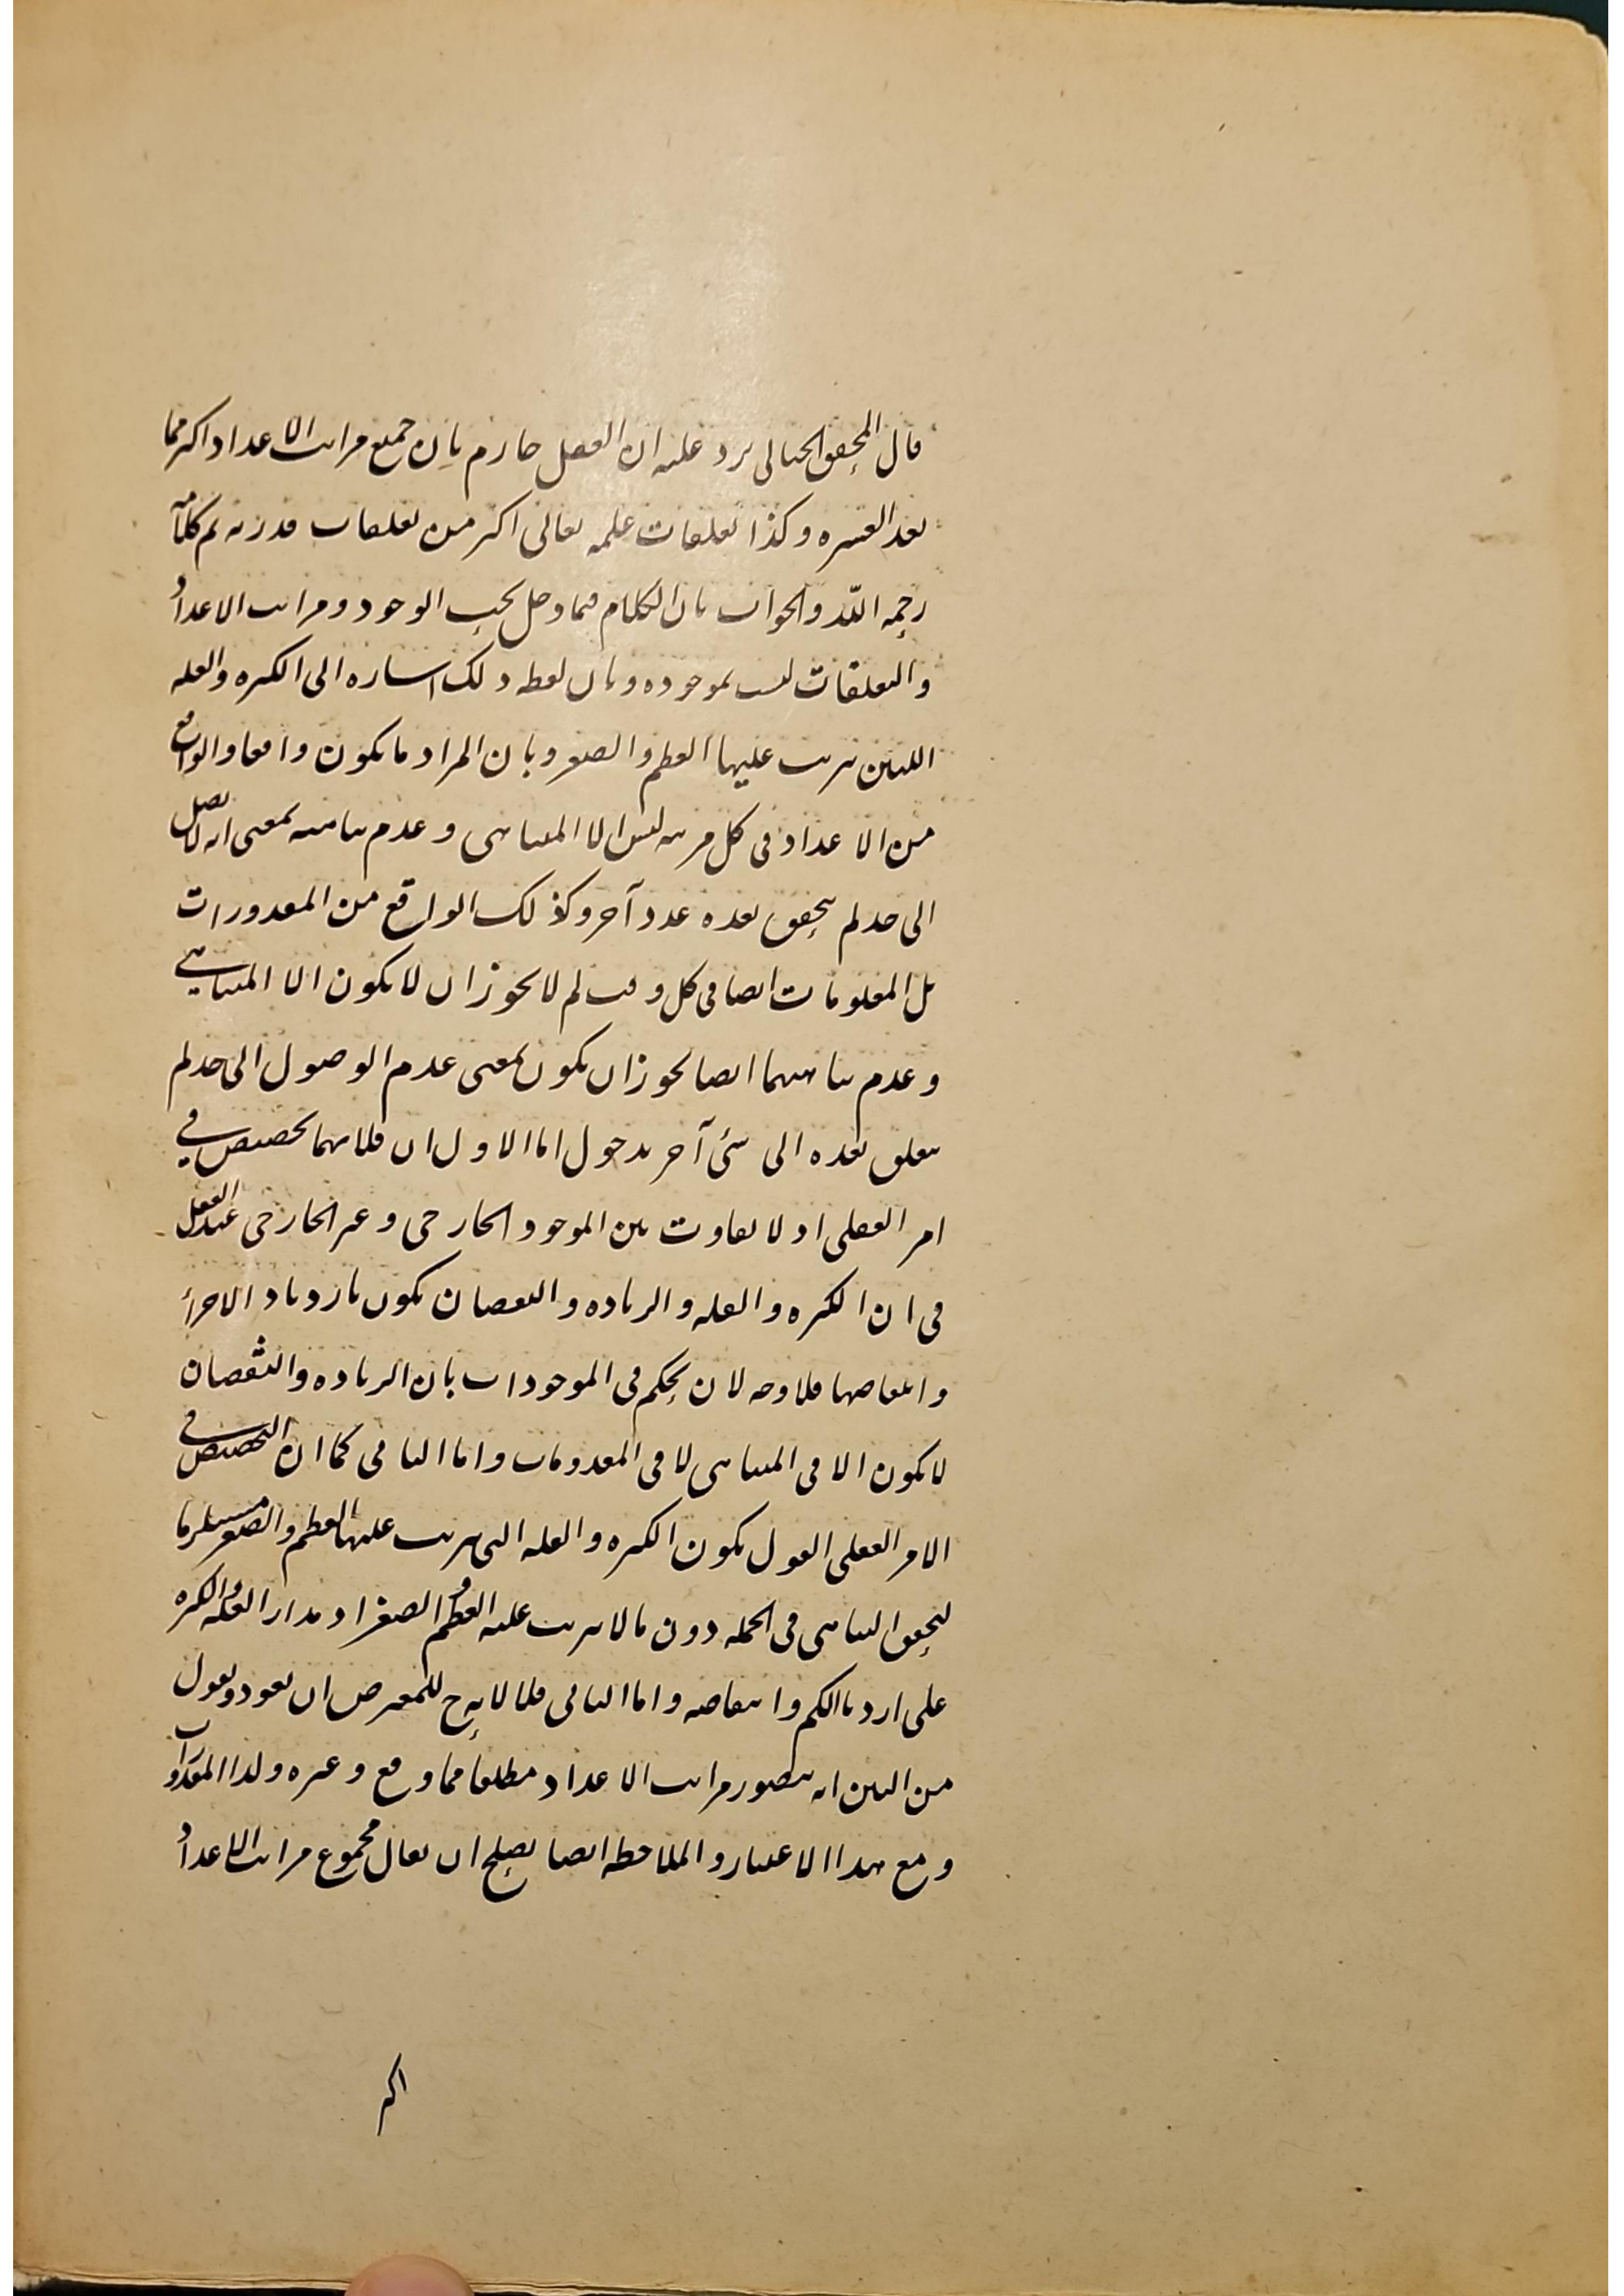 قال المحقق الخيالي يرد عليه ان العقل جازم بان جميع مراتب الاعداد اكثر مما
بعد العشرة وكذا تعلقات علمه تعالى اكثر من تعلقات قدرته تم كلامه
رحمه الله والجواب بان الكلام فيما دخل تحت الوجود ومراتب الاعداد
والتعلقات ليست بموجوده وبان لفظه ذلك اشاره الى الكثره والقله
اللتين يترتب عليها العظم والصغر وبان المراد ما يكون واقعا والواقع
من الاعداد في كل مرتبه ليس الا المتناهى وعدم تناهيه بمعنى انه لا يصل
الى حد لم يتحقق بعده عدد آخر وكذلك الواقع من المقدورات
بل المعلومات ايضا في كل وقت لم لا يجوز ان لا يكون الا المتناهي
وعدم تناهيهما ايضا يجوز ان يكون بمعنى عدم الوصول الى حد لم
يتعلق بعده الى شئ آخر مدخول اما الاول ان فلانهما تخصيص في
امر العقلى اذ لا تفاوت بين الموجود الخارجى وغير الخارجى عند العقل
في ان الكثره والقله والزياده والنقصان يكون بازدياد الاجزأ
وانتقاصها فلا وجه لان يحكم في الموجودات بان الزياده والنقصان
لا يكون الا في المتناهى لا في المعدومات واما الثانى كما ان التخصيص في
الامر العقلى القول بكون الكثره والقله التى يترتب عليها العظم والصغر مستلزما
لتحقق التناهى في الجمله دون ما لا يترتب عليه العظم والصغر اذ مدار القله والكثره
على ازدياد الكم وانتقاصه واما الثالث فلا للمعترض ان يعود ويقول
من البين انه يتصور مراتب الاعداد مطلقا مما وقع وغيره ولذا المقدورات
ومع هذا الاعتبار والملاحظه ايضا يصلح ان يقال مجموع مراتب الاعداد
اكثر